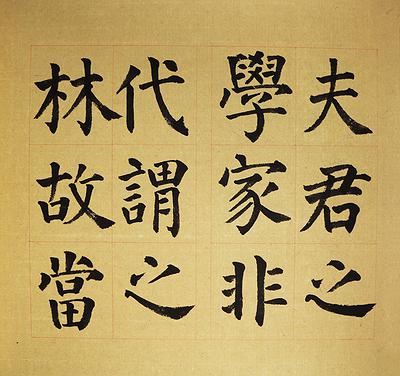 夫君之
學家非
代謂之
林故當